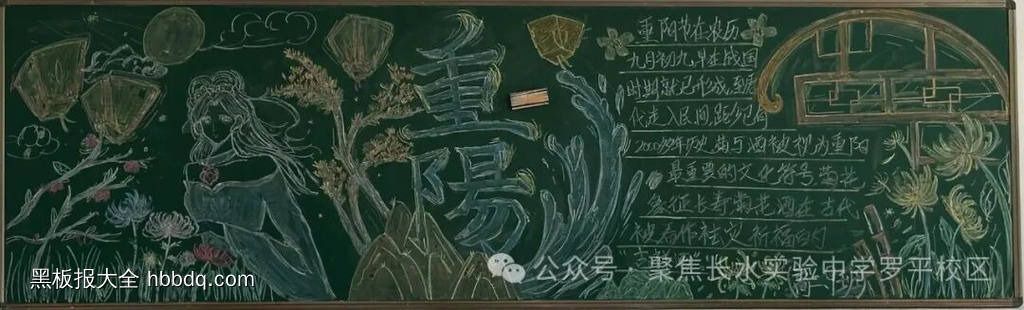 重
陽
重阳节在农历
九月初九,早在战国
时期就已形成,到唐
代走入民间,距今已有
2000多年历史,菊与酒被视为重阳
最重要的文化符号,菊花
象征长寿,菊花酒在古代
被看作祛灾祈福的
吉祥
黑板报大全 hbbdq.com
公众号·聚焦长水实验中学罗平校区